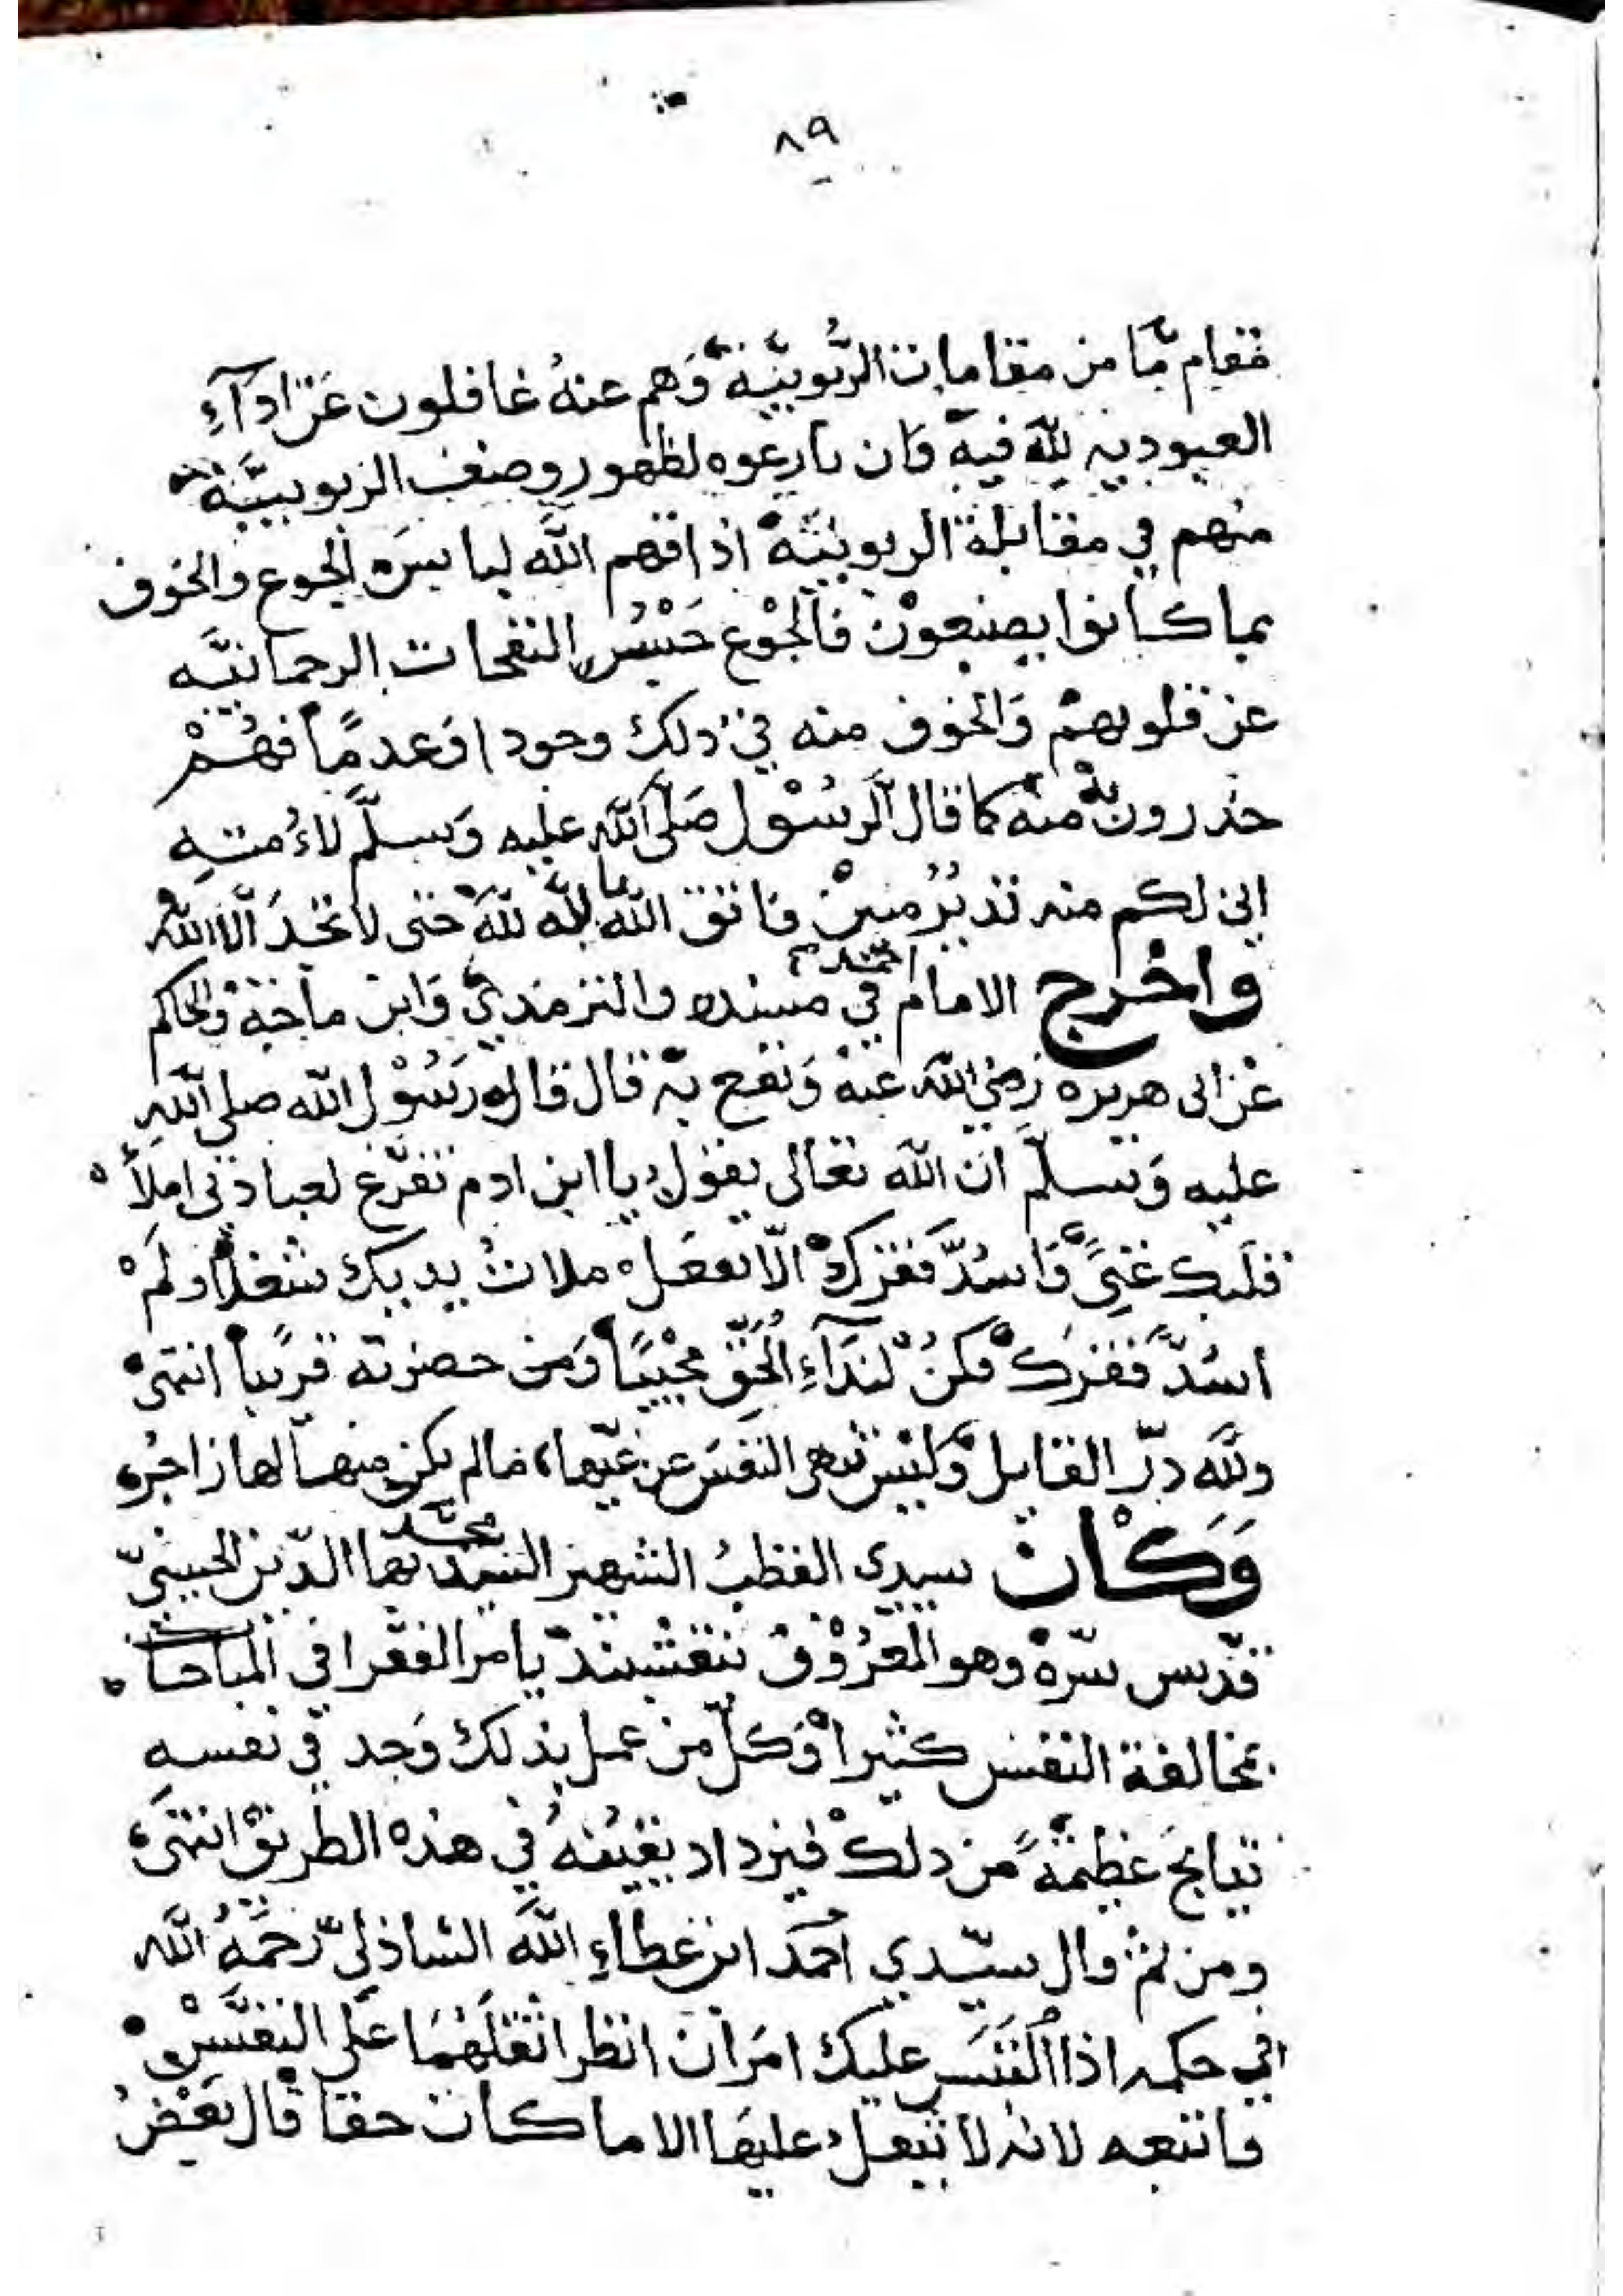 ٨٩
مقام مّا من مقامات الرّبوبيّة وَهم عنهُ غافلون عَن ادآءِ
العبوديه لِلّه فيه فان نازعوه لظهور وصف الربوبيَّة
منهم في مقابلة الربوبيَّة اذاقهم اللّه لباسَ الجوع والخوف
بما كانوا يصنعوْن فالجُوْع حَبْسُ النفحات الرحمانيَّه
عن قلوبهمْ وَالخوف منه في ذلك وجودا وَعدمًا فهُمْ
حذرون منْه كما قال الرسُوْل صَلّى اللّه عليه وَسلّم لاُمتهِ
اني لكم منه نذيرُ مبينْ فاتق اللّه باللّه للّه حتى لا تجدَ الّا اللّهُ
واخْرج الامام احمد في مسنده والترمذي وَابن ماجَةْ والحاكم
عَن ابى هريره رَضي اللّه عنهْ وَنفع به قال قال رَسُوْل اللّه صلى اللّهِ
عليه وَسلّم انّ اللّه تعالى يقول يا ابن ادم تفرّغ لعبادتى املأْ
قلبك غنىً وَاسُدَّ فَقركْ الّا تفعَلْ ملاتُ يديك شغلاً ولَمْ
اسُدَّ فقركْ فكنْ لندَآءِ الحَقّ مجيْباً وَمن حضرته قريباً انتهىْ
وللّه درّ القايل وَليْسَ تنهى النفسَ عن غيّها، مالم يكن منها لها زاجره
وَكَانْ سيدى القطبُ الشهير السيّد محمّد بهَا الدّين الحسينيّ
قدّس سرّهْ وهو المعْرُوْف بنقشبند يامر الفقرا في المباحات
بمخالفة النفس كثيراً وَكلّ من عمل بذلك وَجد في نفسهِ
نتايجَ عَظِيمَةً من ذلكْ فيزداد يقيْنهُ في هذه الطريقْ انتهى،
ومن ثمْ قال سيّدي احمَد ابن عَطاءِ اللّه الشاذليّ رَحمَهُ اللّه
في حكمه اذا التَبَسَ عليك امرَان انظر اثقلَهُمَا عَلى النفسْ
فاتبعه لانه لا يثقل عليهَا الا ما كانَ حقا قال بَعْضُ